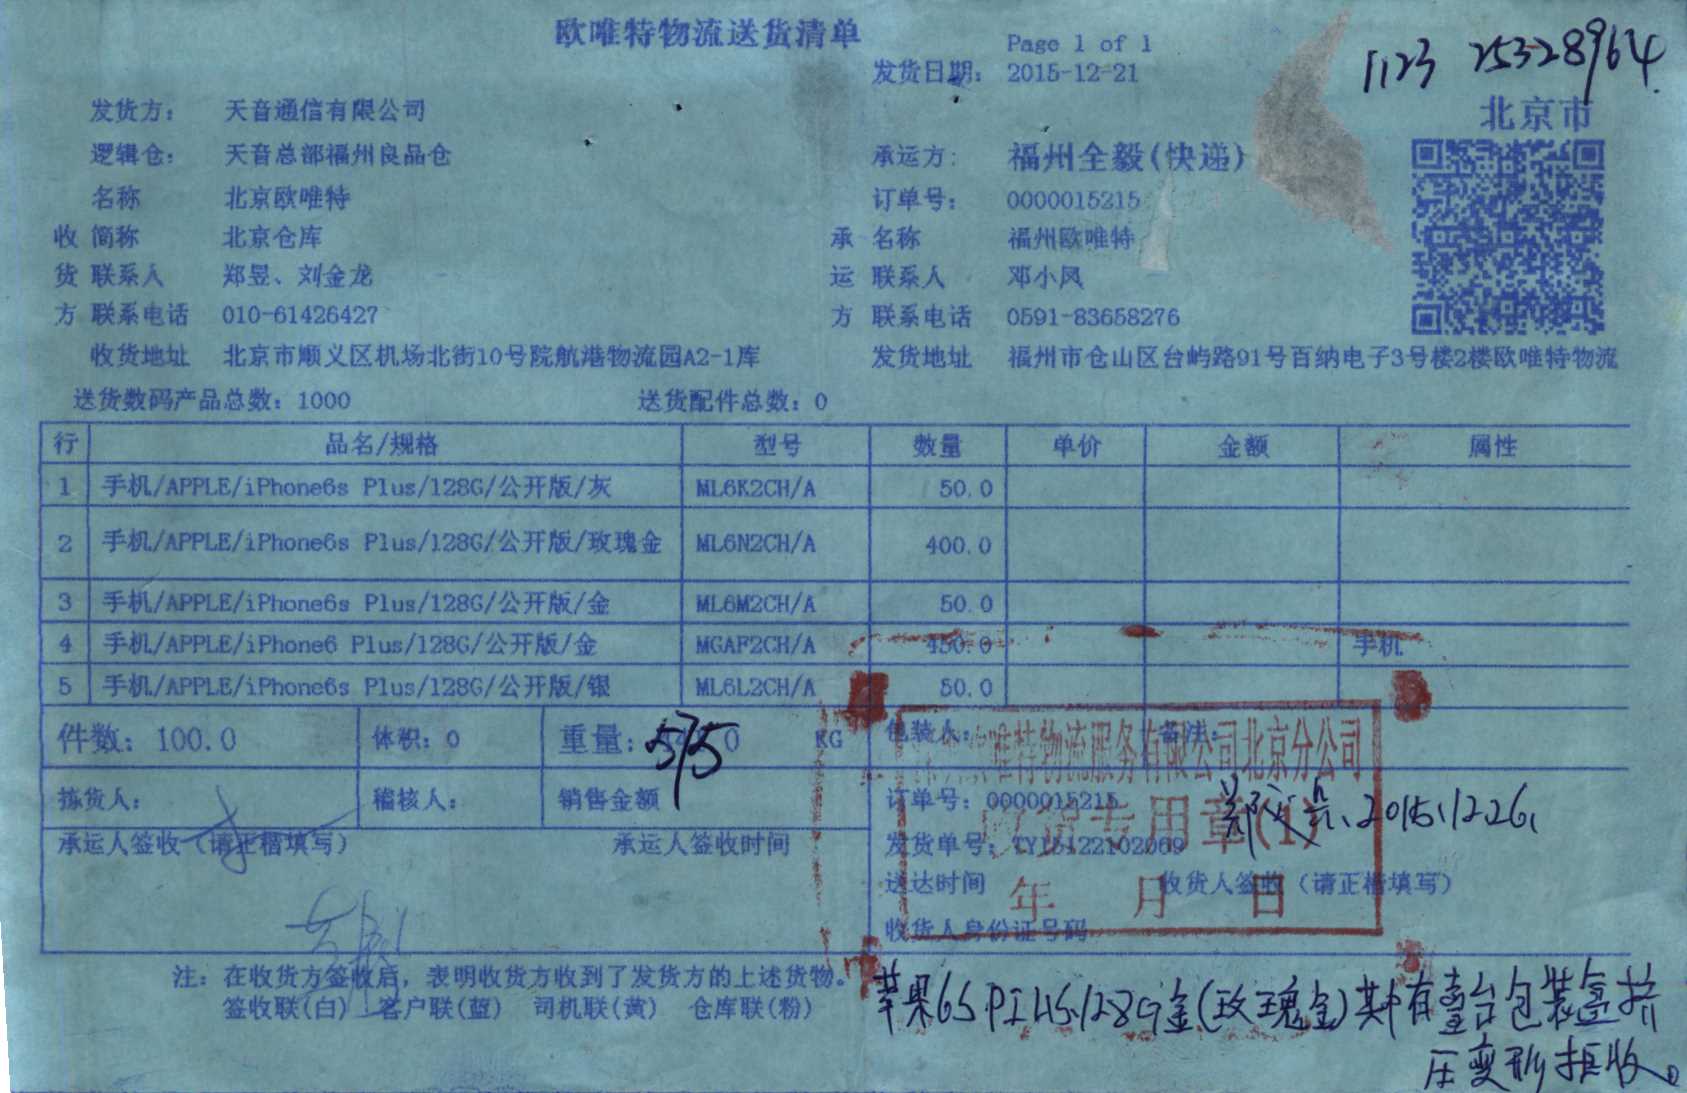 欧唯特物流送货清单
Page 1 of 1
发货日期: 2015-12-21
1123 25328964
北京市
发货方: 天音通信有限公司
逻辑仓: 天音总部福州良品仓 承运方: 福州全毅(快递)
名称 北京欧唯特 订单号: 0000015215
收 简称 北京仓库 承 名称 福州欧唯特
货 联系人 郑昱、刘金龙 运 联系人 邓小凤
方 联系电话 010-61426427 方 联系电话 0591-83658276
收货地址 北京市顺义区机场北街10号院航港物流园A2-1库 发货地址 福州市仓山区台屿路91号百纳电子3号楼2楼欧唯特物流
送货数码产品总数: 1000 送货配件总数: 0
行 品名/规格 型号 数量 单价 金额 属性
1 手机/APPLE/iPhone6s Plus/128G/公开版/灰 ML6K2CH/A 50.0
2 手机/APPLE/iPhone6s Plus/128G/公开版/玫瑰金 ML6N2CH/A 400.0
3 手机/APPLE/iPhone6s Plus/128G/公开版/金 ML6M2CH/A 50.0
4 手机/APPLE/iPhone6 Plus/128G/公开版/金 MGAF2CH/A 450.0 手机
5 手机/APPLE/iPhone6s Plus/128G/公开版/银 ML6L2CH/A 50.0
件数: 100.0 体积: 0 重量: 575 KG 包装人: 备注:
唯特物流服务有限公司北京分公司
拣货人: 稽核人: 销售金额 订单号: 0000015215
专用章(1)
2015.12.26.
承运人签收 (请正楷填写) 承运人签收时间 发货单号: TY15122102069
送达时间 收货人签收 (请正楷填写)
年 月 日
收货人身份证号码
注: 在收货方签收后, 表明收货方收到了发货方的上述货物。
签收联(白) 客户联(蓝) 司机联(黄) 仓库联(粉)
苹果6S.PLUS.128G金(玫瑰金)其中有壹台包装盒挤
压变形拒收。